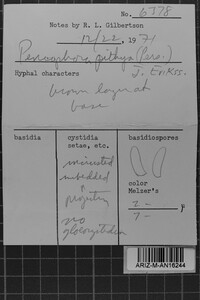 No. 6778
Notes by R. L. Gilbertson
12/22, 1971
Peniophora pithya (Pers.)
J. Erikss.
Hyphal characters
brown layer at
base
basidia
cystidia
setae, etc.
basidiospores
incrusted
imbedded
&
projecting
no
gloeocystidia
color
Melzer's
2 -
7 - μ
ARIZ-M-AN16244